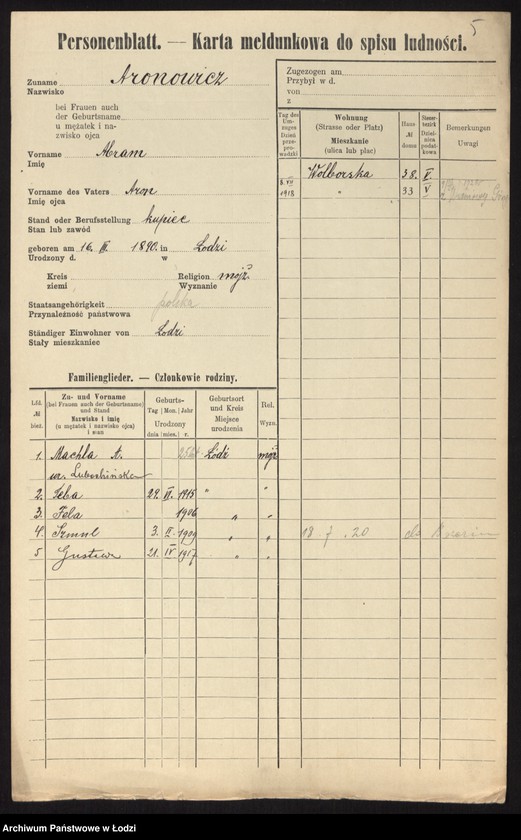 5
Personenblatt. — Karta meldunkowa do spisu ludności.
Zuname Aronowicz
Nazwisko
bei Frauen auch
der Geburtsname
u mężatek i na-
zwisko ojca
Vorname Abram
Imię
Vorname des Vaters Aron
Imię ojca
Stand oder Berufsstellung kupiec
Stan lub zawód
geboren am 16. III. 1890. in Łodzi
Urodzony d. w
Kreis Religion mojż
ziemi Wyznanie
Staatsangehörigkeit polska
Przynależność państwowa
Ständiger Einwohner von Łodzi
Stały mieszkaniec
Zugezogen am
Przybył w d.
von
z
Tag des Um-zuges Dzień prze-prowadzki
Wohnung (Strasse oder Platz) Mieszkanie (ulica lub plac)
Haus № domu
Steuer-bezirk Dziel-nica podat-kowa
Bemerkungen Uwagi
Wolborska 38 V.
8. VII 1918 " 33 V
Familienglieder. — Członkowie rodziny.
Lfd. № bież.
Zu- und Vorname (bei Frauen auch der Geburtsname) und Stand Nazwisko i imię (u mężatek i nazwisko ojca) i stan
Geburts- Tag Mon. Jahr Urodzony dnia mies. r.
Geburtsort und Kreis Miejsce urodzenia
Rel. Wyzn.
1. Machla A. Łódź mojż
ur.
2. 29. VI. 1915 " "
3. Fela 1906 " "
4. 3. II. 1909 " " 18 7. 20 do
5 Gustawa 21. IV 1917 " "
Archiwum Państwowe w Łodzi